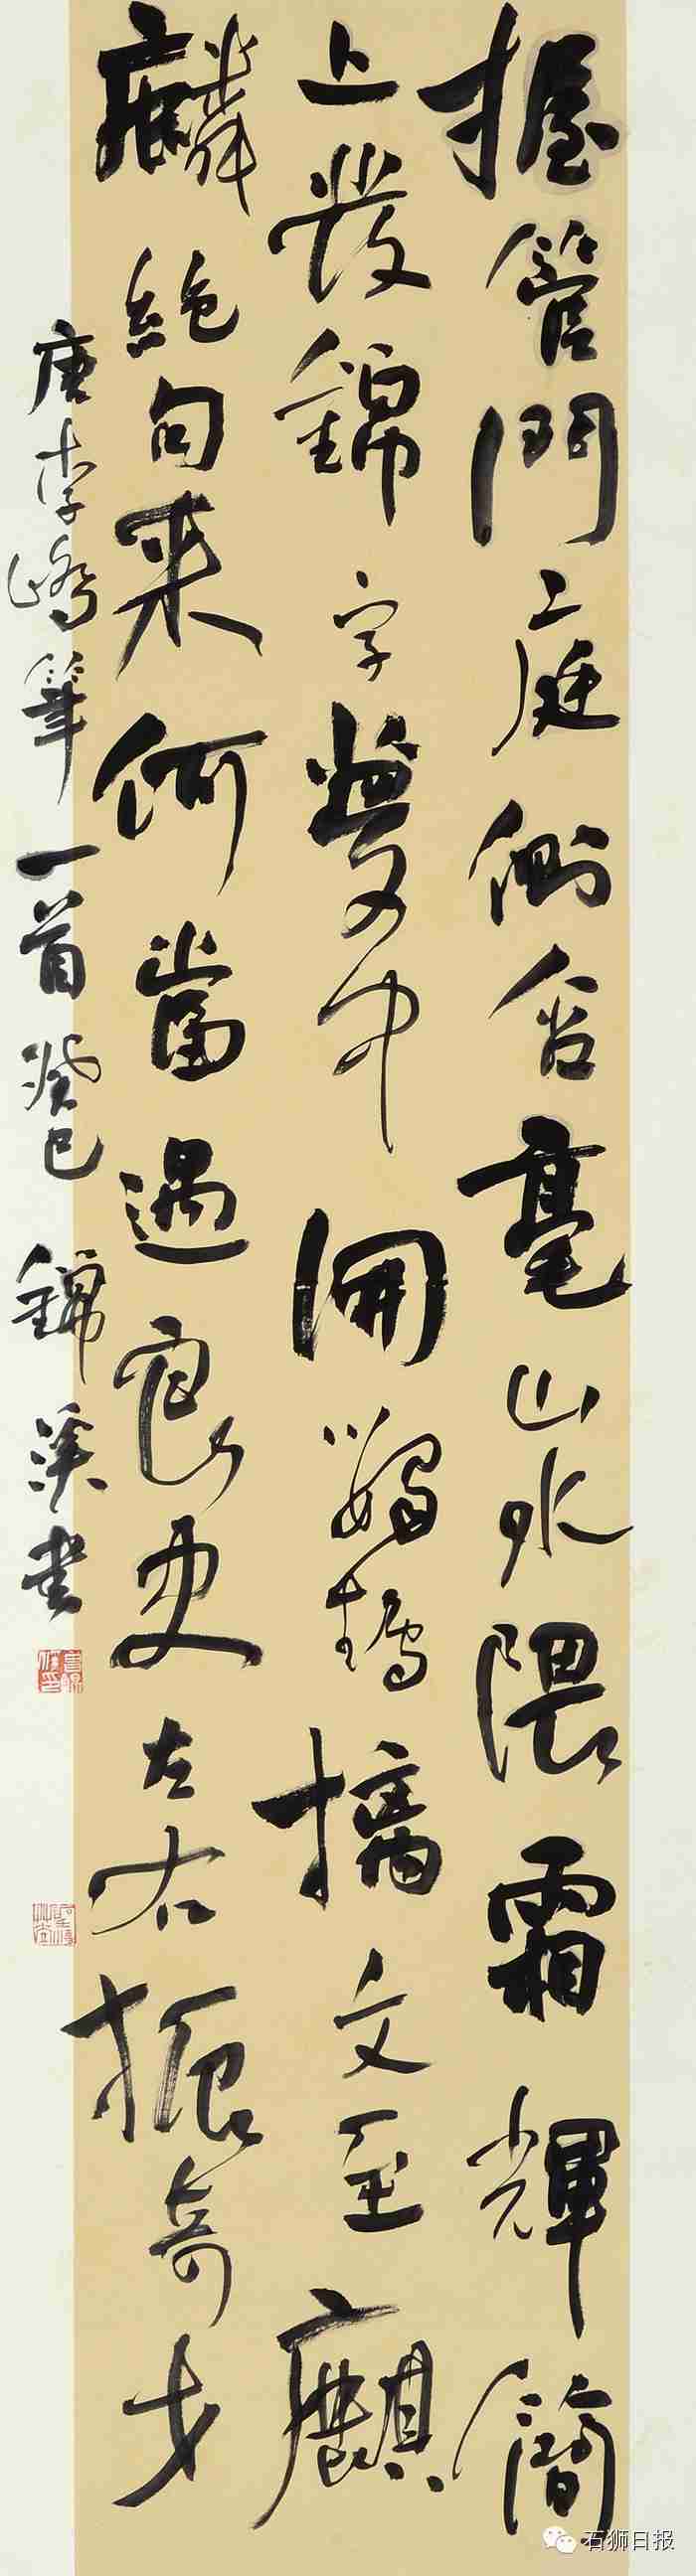 握管門庭側含毫山水隈霜輝簡
上發錦字夢中開鸚鵡摛文至麒
麟絶句来何當遇良史左右振奇才
唐李嶠筆一首癸巳 錦溪書
石狮日报